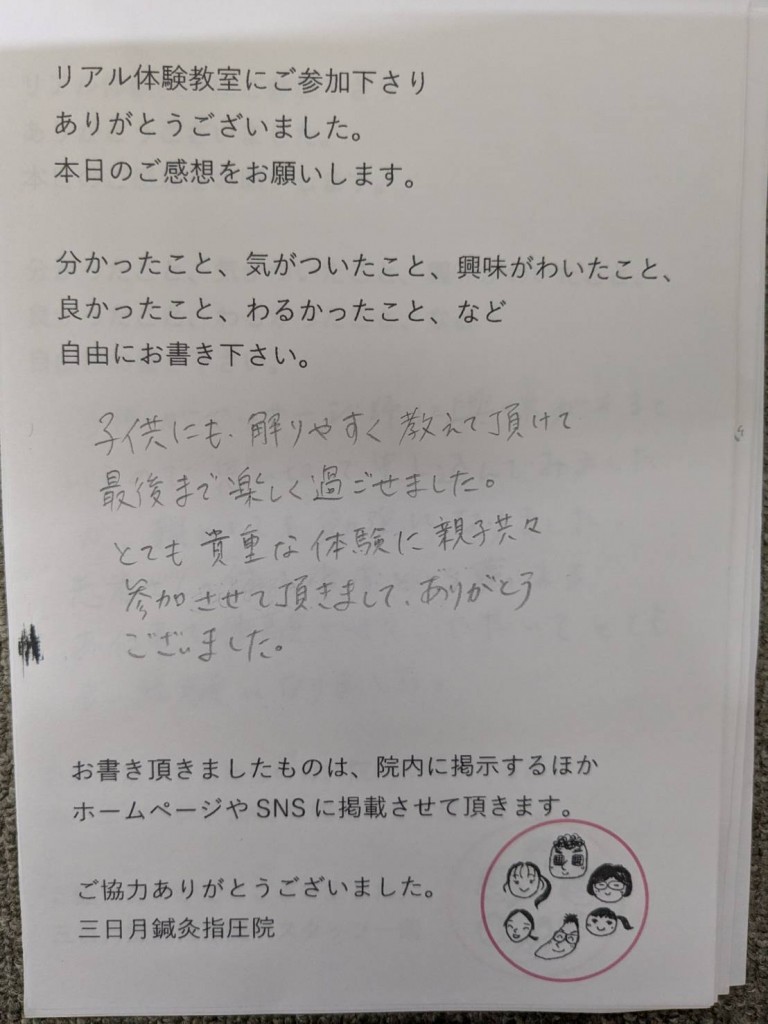 リアル体験教室にご参加下さり
ありがとうございました。
本日のご感想をお願いします。
分かったこと、気がついたこと、興味がわいたこと、
良かったこと、わるかったこと、など
自由にお書き下さい。
子供にも、解りやすく教えて頂けて
最後まで楽しく過ごせました。
とても貴重な体験に親子共々
参加させて頂きまして、ありがとう
ございました。
お書き頂きましたものは、院内に掲示するほか
ホームページやSNSに掲載させて頂きます。
ご協力ありがとうございました。
三日月鍼灸指圧院